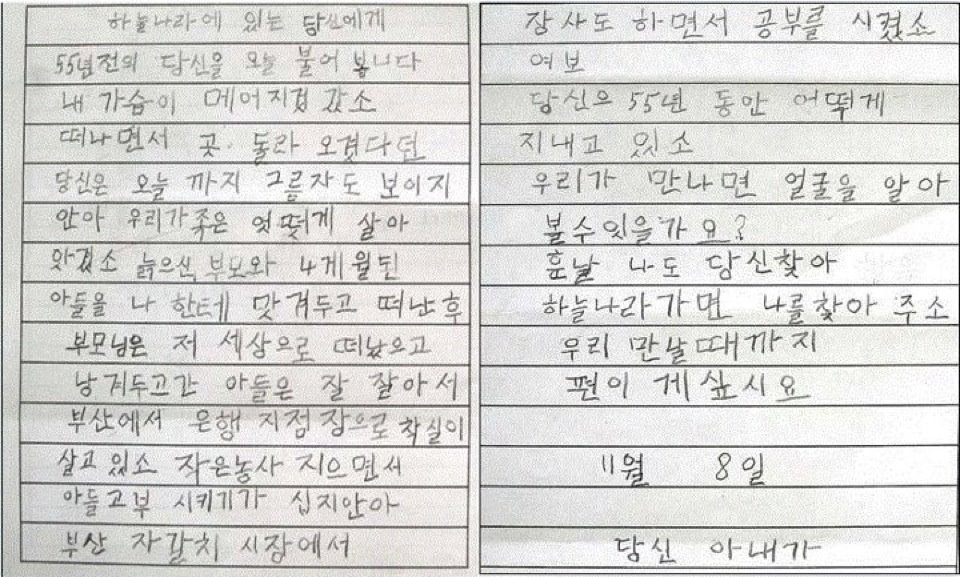 하늘나라에 있는 당신에게
55년전의 당신을 오늘 불어 봅니다
내 가슴이 메어지겁 갔소
떠나면서 곳. 돌라 오겠다던
당신은 오늘 까지 그름자도 보이지
안아 우리가족은 엇떳게 살아
와겠소 늙으신 부모와 4게월된
아들을 나 한테 맛겨두고 떠난후
부모님은 저 세상으로 떠났으고
낭겨두고간 아들은 잘 잘아서
부산에서 은행 지점장으로 착실이
살고 있소 작은농사 지으면서
아들고부 시키기가 십지안아
부산 자갈치 시장에서
장사도 하면서 공부를 시켰소
여보
당신으 55년 동안 어떻게
지내고 있소
우리가 만나면 얼굴을 알아
볼수잇을가요?
훈날 나도 당신찾아
하늘나라가면 나를찾아 주소
우리 만날때까지
편이 게싶시요
11월 8일
당신 아내가